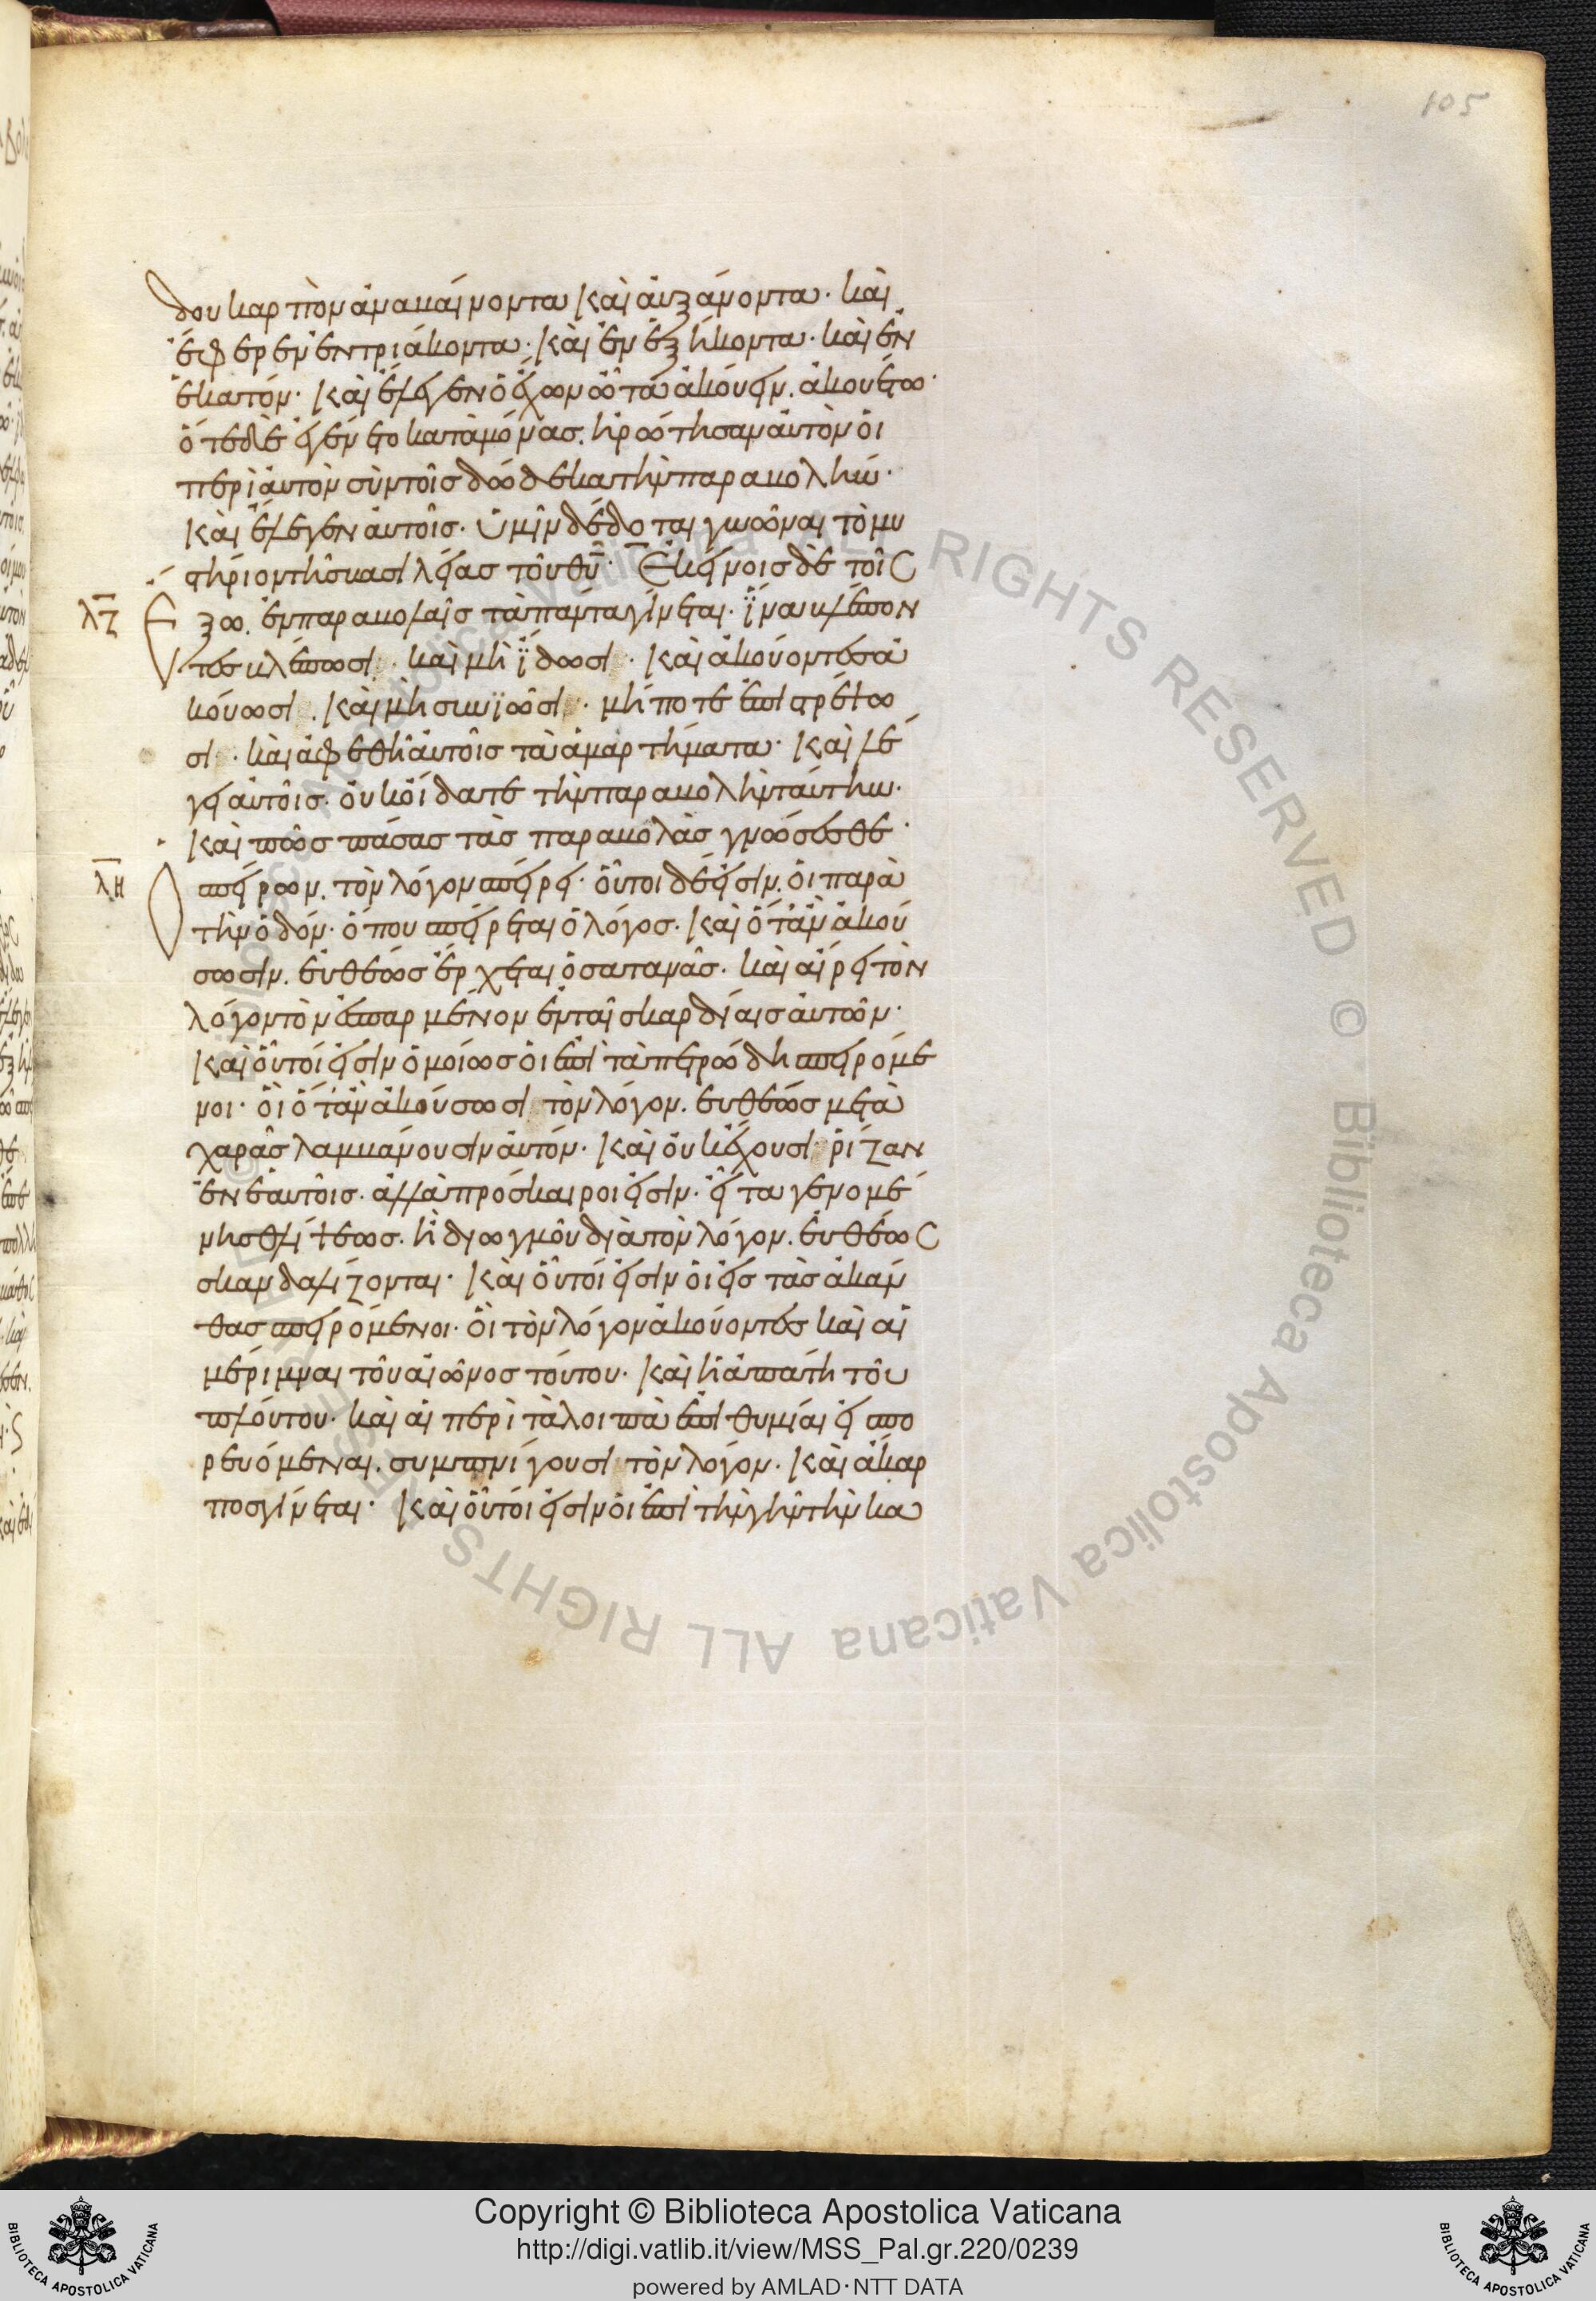 105
δου καρπὸν ἀναβαίνοντα καὶ ἀυξάνοντα· καὶ
ἔφερεν ἐν τριάκοντα· καὶ ἐν ἑξήκοντα· καὶ ἐν
ἑκατόν· καὶ ἔλεγεν ὁ ἔχων ὦτα ἀκούειν. ἀκουέτω·
ὅτε δὲ ἐγένετο καταμόνας. ἠρώτησαν ἀυτὸν ὁι
περὶ ἀυτὸν σὺν τοῖς δώδεκα τὴν παραβολήν·
καὶ ἔλεγεν ἀυτοῖς. ὑμῖν δέδοται γνῶναι τὸ μυ
στήριον τῆς βασιλείας τοῦ θ̅υ̅· Ἐκείνοις δὲ τοῖς
λ̅ζ̅ Ἔξω. ἐν παραβολαῖς τὰ πάντα γίνεται· ἵνα βλέπον
τες βλέπωσι· καὶ μὴ ἴδωσι· καὶ ἀκούοντες ἀ
κούωσι. καὶ μὴ συνϊῶσι· μήποτε ἐπιστρέψω
σι· καὶ ἀφεθῆ ἀυτοῖς τὰ ἁμαρτήματα· καὶ λέ
γει ἀυτοῖς· ὀυκ ὄιδατε τὴν παραβολὴν τάυτην·
καὶ πῶς πάσας τὰς παραβολὰς γνώσεσθε·
λ̅η̅ Ὁ σπείρων. τὸν λόγον σπείρει· ὅυτοι δέ εἰσιν. ὁι παρὰ
τὴν ὁδόν· ὅπου σπείρεται ὁ λόγος. καὶ ὅταν ἀκού
σωσιν. ἐυθέως ἔρχεται ὁ σατανᾶς· καὶ ἄιρει τὸν
λόγον τὸν ἐσπαρμένον ἐν ταῖς καρδίαις ἀυτῶν·
καὶ ὅυτοί εἰσιν ὁμοίως ὁι ἐπὶ τὰ πετρώδη σπειρόμε
νοι· ὁὶ ὅταν ἀκούσωσι τὸν λόγον. ἐυθέως μετὰ
χαρᾶς λαμβάνουσιν ἀυτόν· καὶ ὀυκ ἔχουσι ῥίζαν
ἐν ἑαυτοῖς. ἀλλὰ πρόσκαιροι εἰσιν. εἶτα γενομέ
νης θλίψεως. ἢ διωγμοῦ διὰ τὸν λόγον. ἐυθέως
σκανδαλίζονται· καὶ ὅυτοί εἰσιν ὁι εἰς τὰς ἀκάν
θας σπειρόμενοι· ὁὶ τὸν λόγον ἀκούοντες καὶ αἱ
μέριμναι τοῦ αἰῶνος τούτου· καὶ ἡ ἀπάτη τοῦ
πλούτου· καὶ αἱ περὶ τὰ λοιπὰ ἐπιθυμίαι εἰσπο
ρευόμεναι. συμπνίγουσι τὸν λόγον· καὶ ἄκαρ
πος γίνεται· καὶ ὅυτοί εἰσιν ὁι ἐπὶ τὴν γῆν τὴν κα
Copyright © Biblioteca Apostolica Vaticana
http://digi.vatlib.it/view/MSS_Pal.gr.220/0239
powered by AMLAD·NTT DATA